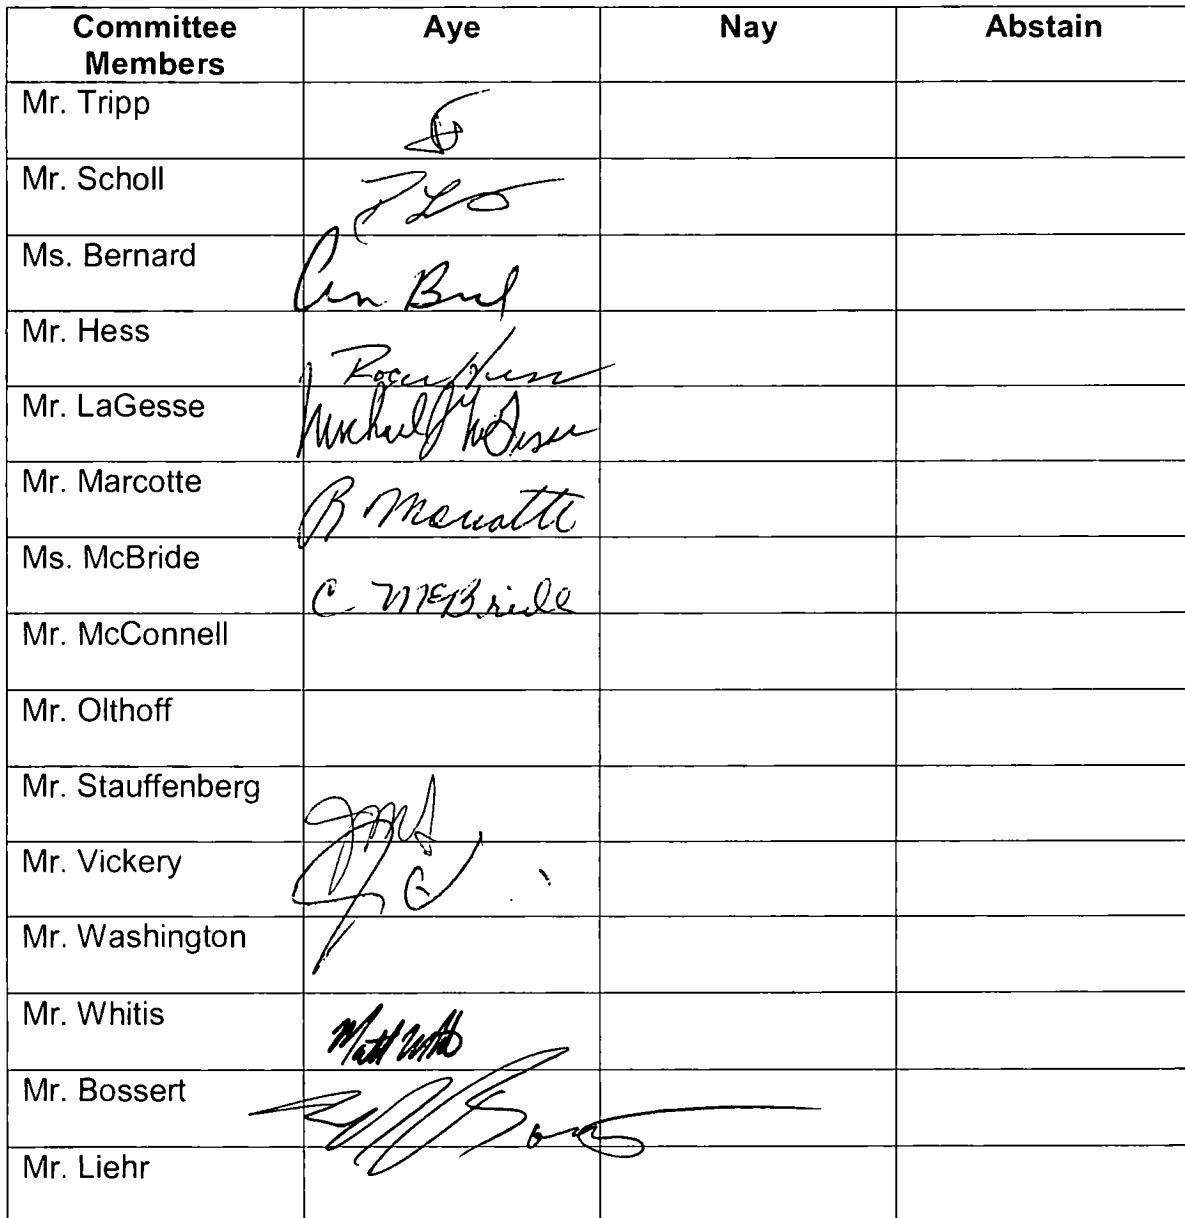 Committee Members Aye Nay Abstain
Mr. Tripp
Mr. Scholl
Ms. Bernard
Mr. Hess Roger Hess
Mr. LaGesse Michael J LaGesse
Mr. Marcotte R Marcotte
Ms. McBride C McBride
Mr. McConnell
Mr. Olthoff
Mr. Stauffenberg
Mr. Vickery
Mr. Washington
Mr. Whitis Matt
Mr. Bossert
Mr. Liehr